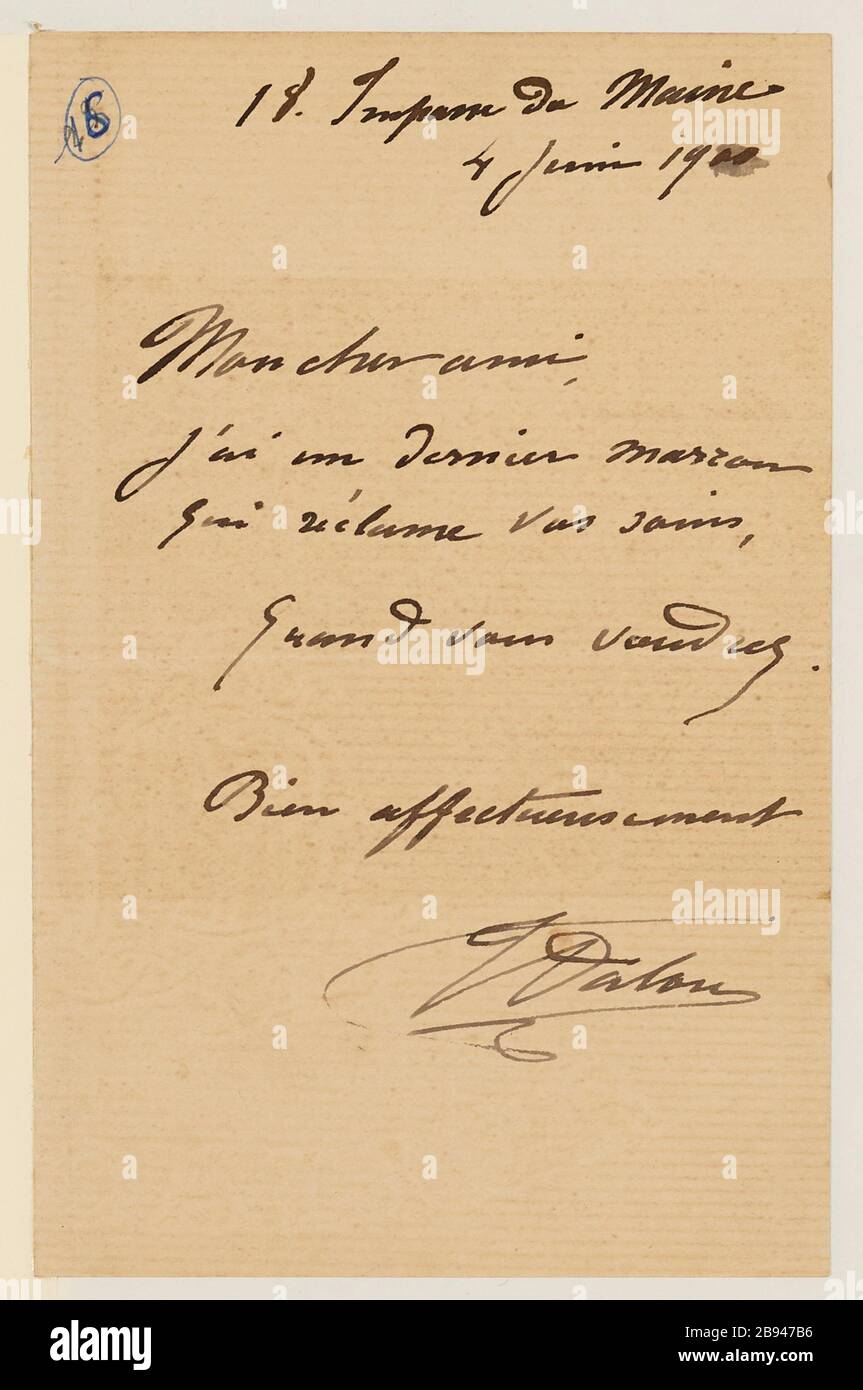 18. Impasse du Maine
4 Juin 1900
Mon cher ami,
J'ai un dernier morceau
qui réclame vos soins,
Quand vous voudrez.
Bien affectueusement
J Dalou
alamy
Image ID: 2B947B6
www.alamy.com